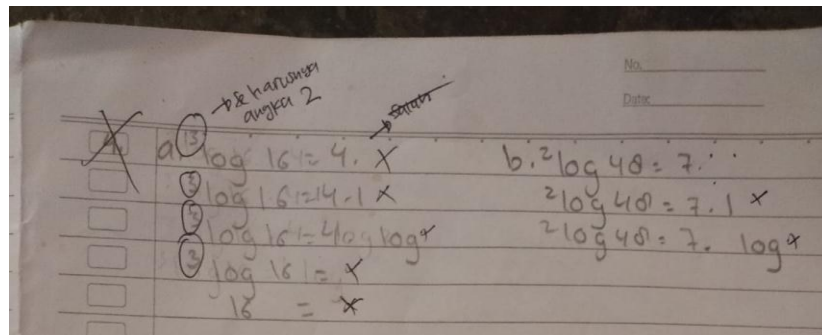 No.
Date:
→ & harusnya
angka 2
→ salah
4. a. ³log 16 = 4. x
³log 16 = 4.1 x
³log 16 = 4 log log x
³log 16 = x
16 = x
b. ²log 48 = 7.
²log 48 = 7.1 x
²log 48 = 7. log x